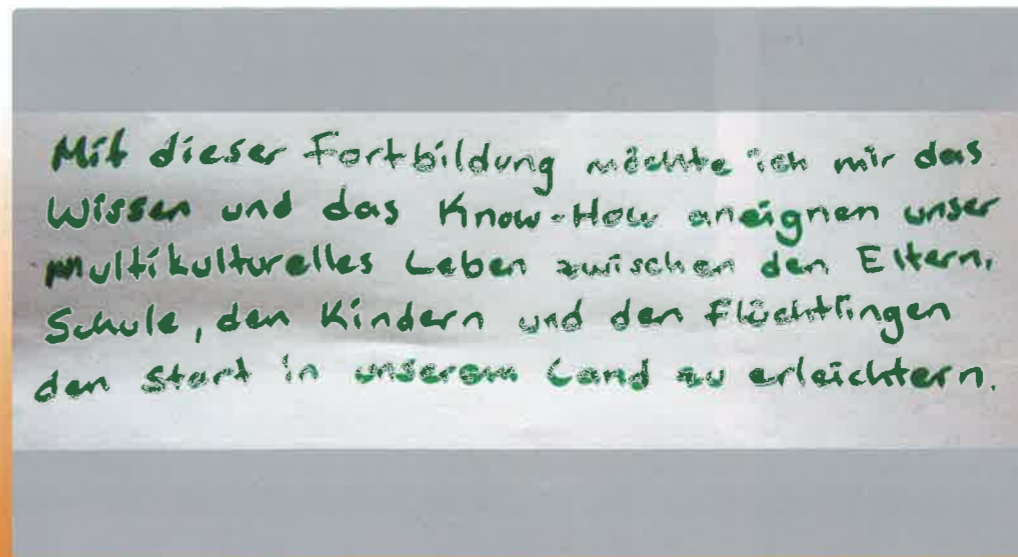 Mit dieser Fortbildung möchte ich mir das
Wissen und das Know-How aneignen unser
multikulturelles Leben zwischen den Eltern,
Schule, den Kindern und den Flüchtlingen
den Start in unserem Land zu erleichtern.